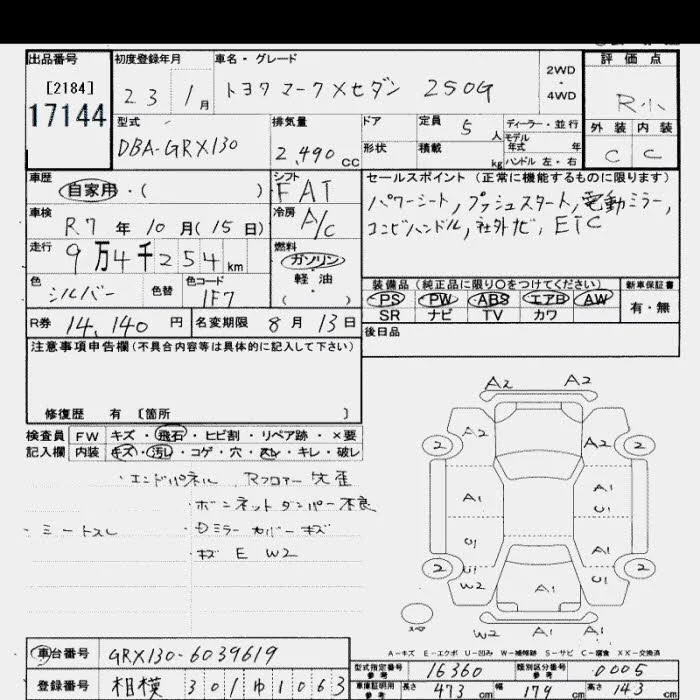 出品番号 初度登録年月 車名・グレード 評価点
[2184] 2WD
17144 23 1月 トヨタ マークXセダン 250G ・ R小
4WD
型式 排気量 ドア 定員 5人 ディーラー・並行 外装 内装
DBA-GRX130 2,490cc 形状 積載 kg モデル年式 年 C C
ハンドル 左・右
車歴 シフト セールスポイント(正常に機能するものに限ります)
自家用・( ) FAT パワーシート,プッシュスタート,電動ミラー,
車検 R7年10月(15日) 冷房 A/C コンビハンドル,社外ナビ,ETC
走行 9万4千254km 燃料 ガソリン
色 シルバー 色替 色コード 1F7 軽油 ( )
装備品(純正品に限り○をつけてください) 新車保証書
PS PW ABS エアB AW 有・無
SR ナビ TV カワ
R券 14,140円 名変期限 8月13日 後日品
注意事項申告欄(不具合内容等は具体的に記入して下さい)
修復歴 有 〔箇所 〕
検査員 FW キズ・飛石・ヒビ割・リペア跡・×要
記入欄 内装 キズ・汚レ・コゲ・穴・スレ・キレ・破レ
・エンドパネル, Rフロアー 先歪
・ボンネットダンパー不良
・シートスレ ・Dミラーカバーキズ
・キズ E W2
A2 A2
A2 A2
2 2
A1 A1
U1
U1 A1
2 U1 U1 2
W2 A1
W2 A1 A1
A-キズ E-エクボ U-凹み W-補修跡 S-サビ C-腐食 XX-交換済
車台番号 GRX130-6039619
型式指定番号 参考 16360 類別区分番号 参考 0005
登録番号 相模 301 ゆ 1063
車庫証明用 参考 長さ 473cm 幅 179cm 高さ 143cm